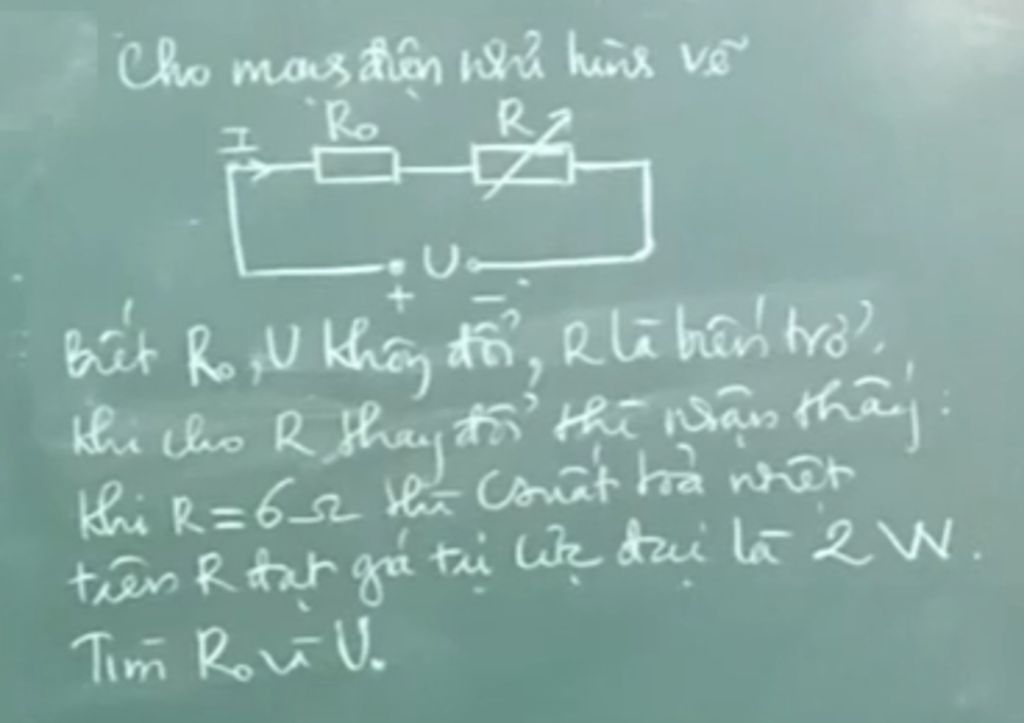 Cho mạch điện như hình vẽ
R₀ R
I
U
+ −
Biết R₀, U không đổi, R là biến trở.
Khi cho R thay đổi thì nhận thấy:
Khi R = 6Ω thì Csuất toả nhiệt
trên R đạt giá trị cực đại là 2 W.
Tìm R₀ và U.